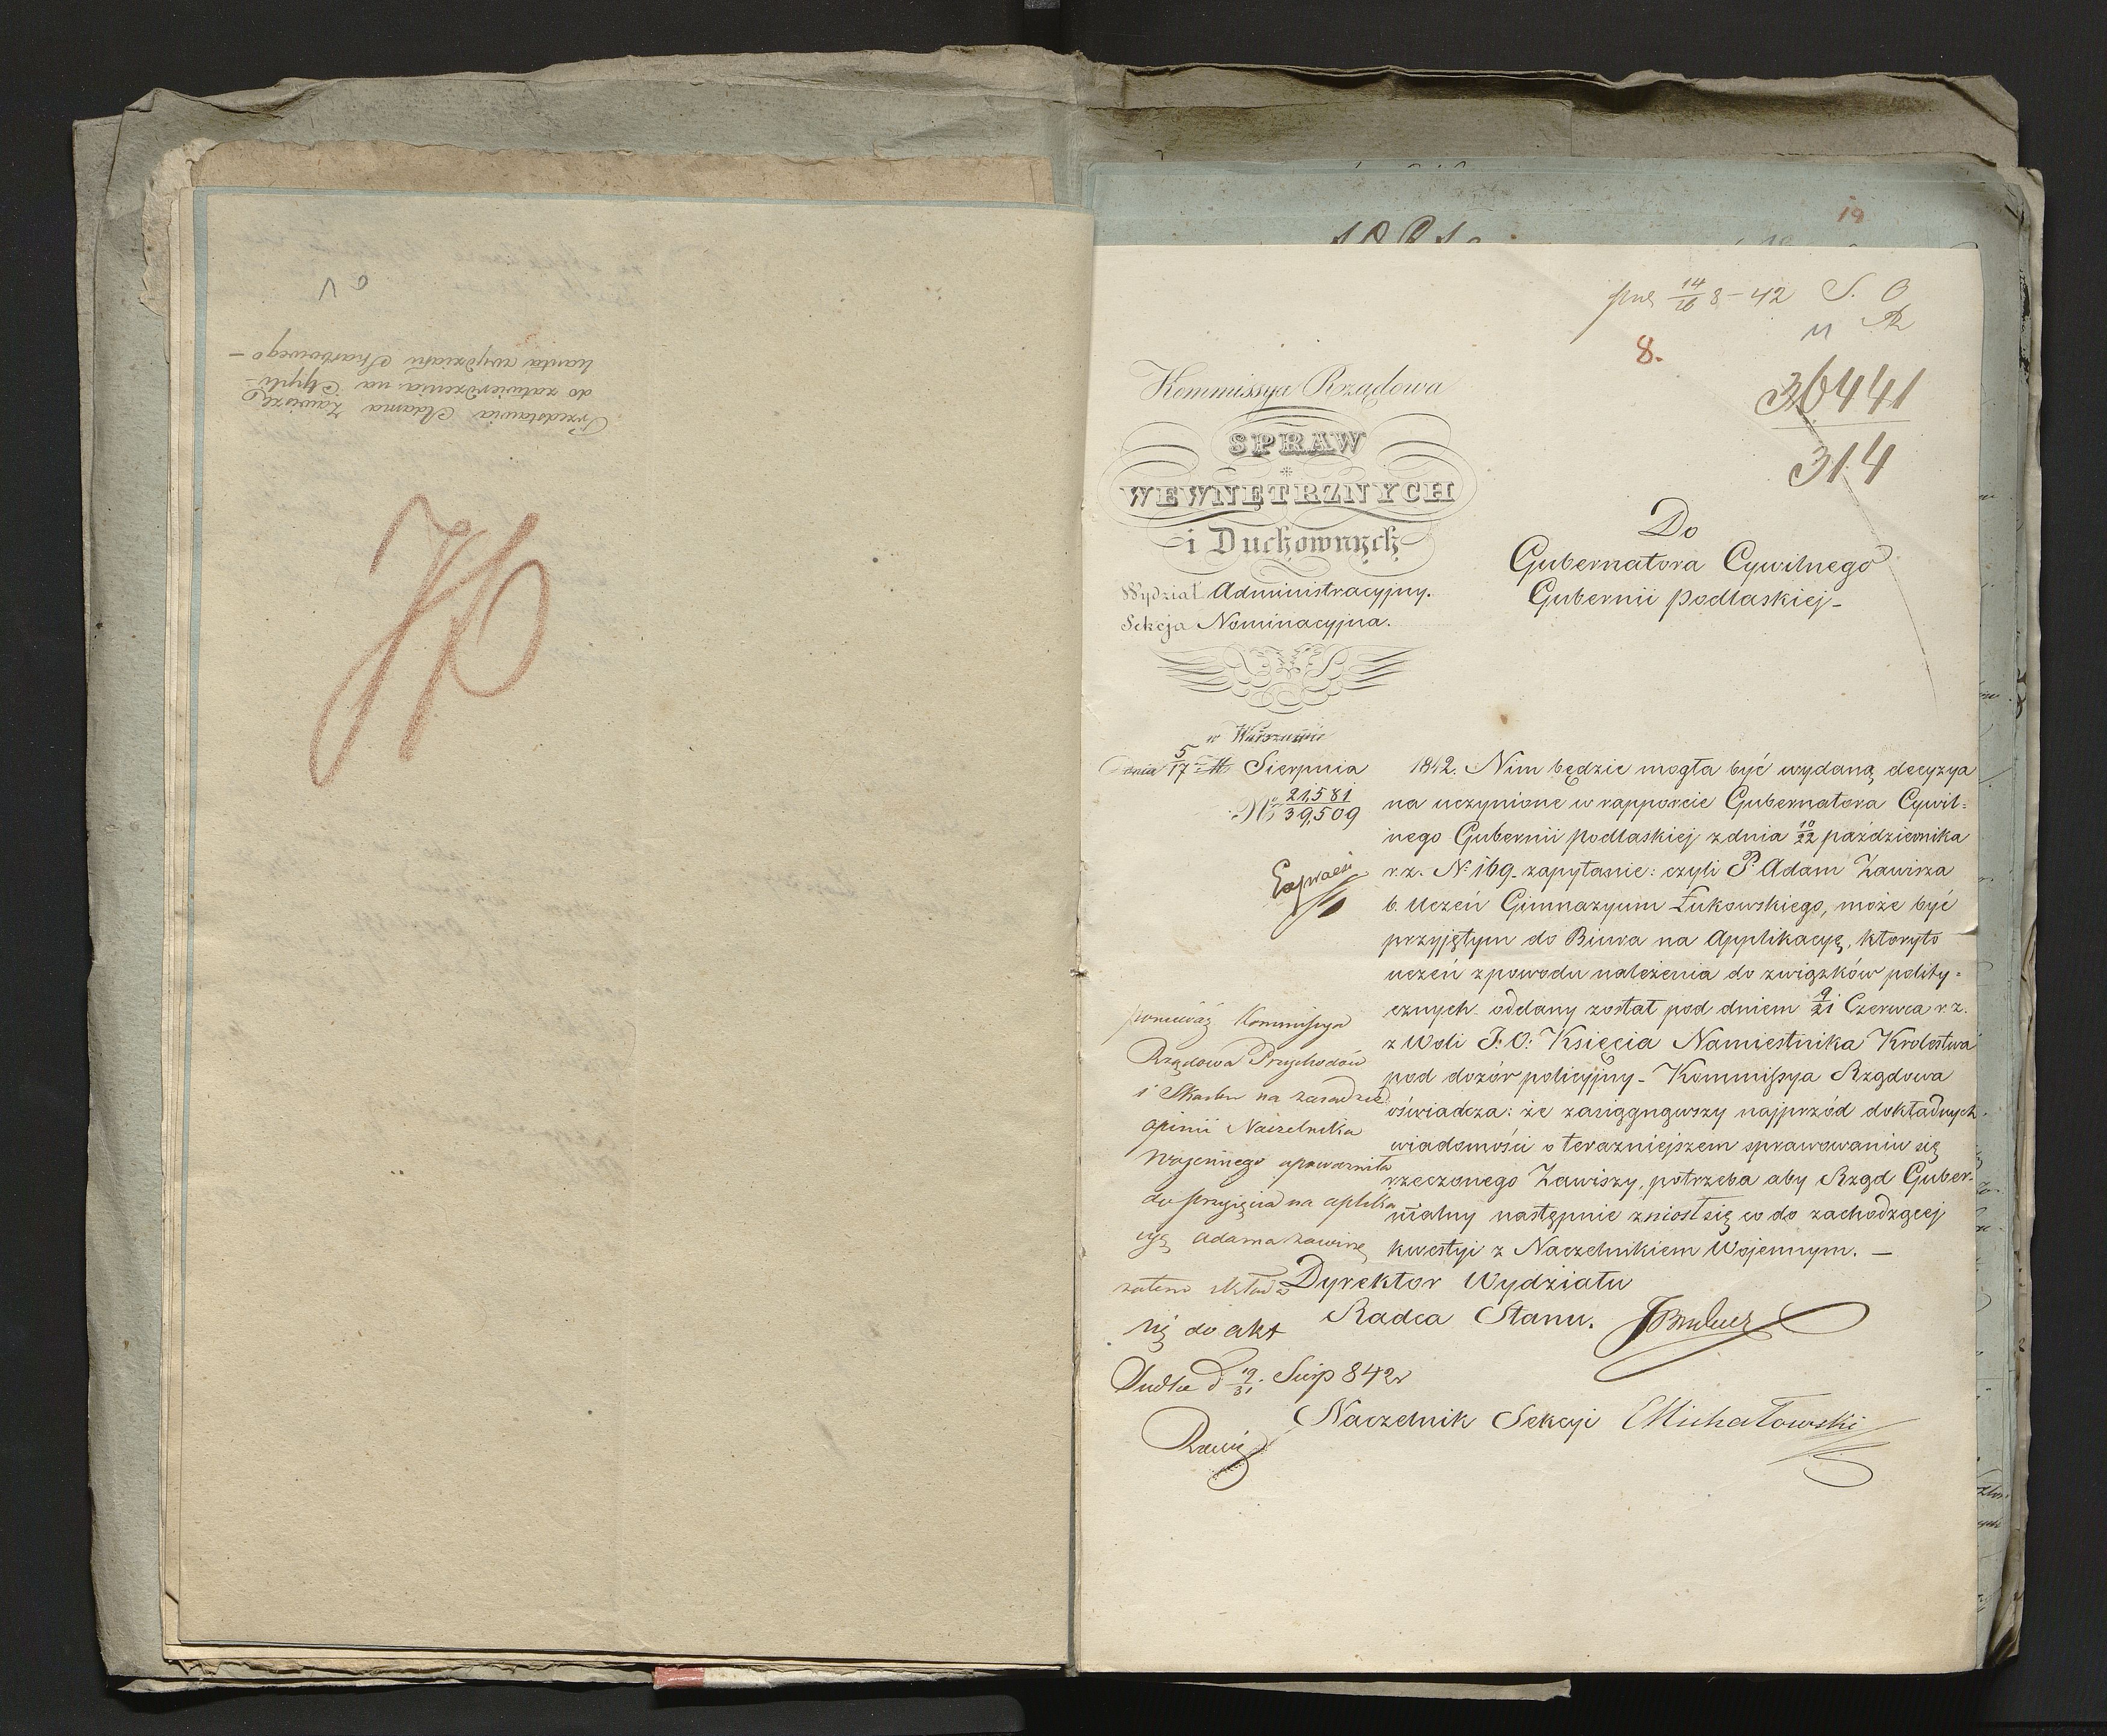 Przedstawia Adama Zawiszę
do zatwierdzenia na Appli-
kanta wydziału Skarbowego –
10
19
14/26 8 – 42 S. O
11
8.
36441
314
Kommissya Rządowa
SPRAW
WEWNĘTRZNYCH
i Duchownych
Wydział Administracyjny.
Sekcja Nominacyjna.
w Warszawie
Dnia 5/17 Sierpnia
No 21,581/39,509
Do
Gubernatora Cywilnego
Gubernii Podlaskiej –
1842. Nim będzie mogła być wydaną decyzya
na uczynione w rapporcie Gubernatora Cywil=
nego Gubernii Podlaskiej z dnia 10/22 października
r. z. N. 169. zapytanie: czyli P. Adam Zawisza
b. Uczeń Gimnazyum Łukowskiego, może być
przyjętym do Biura na Applikacyę, któryto
uczeń z powodu należenia do związków polity=
cznych oddany został pod dniem 9/21 Czerwca r. z.
z Woli J: O: Księcia Namiestnika Królestwa
pod dozór policyjny – Kommissya Rządowa
oświadcza: że zasiągnąwszy najprzód dokładnych
wiadomości o teraźniejszem sprawowaniu się
rzeczonego Zawiszy, potrzeba aby Rząd Guber-
nialny następnie zniosł się co do zachodzącej
kwestyi z Naczelnikiem Wojennym. –
Dyrektor Wydziału
Radca Stanu.
Naczelnik Sekcyi Michałowski
ponieważ Kommissya
Rządowa Przychodów
i Skarbu na zasadzie
opinii Naczelnika
Wojennego upoważniła
do przyjęcia na aplika
cyę Adama Zawiszę
zatem składa
się do akt
d 19/31 Sierp 842 r